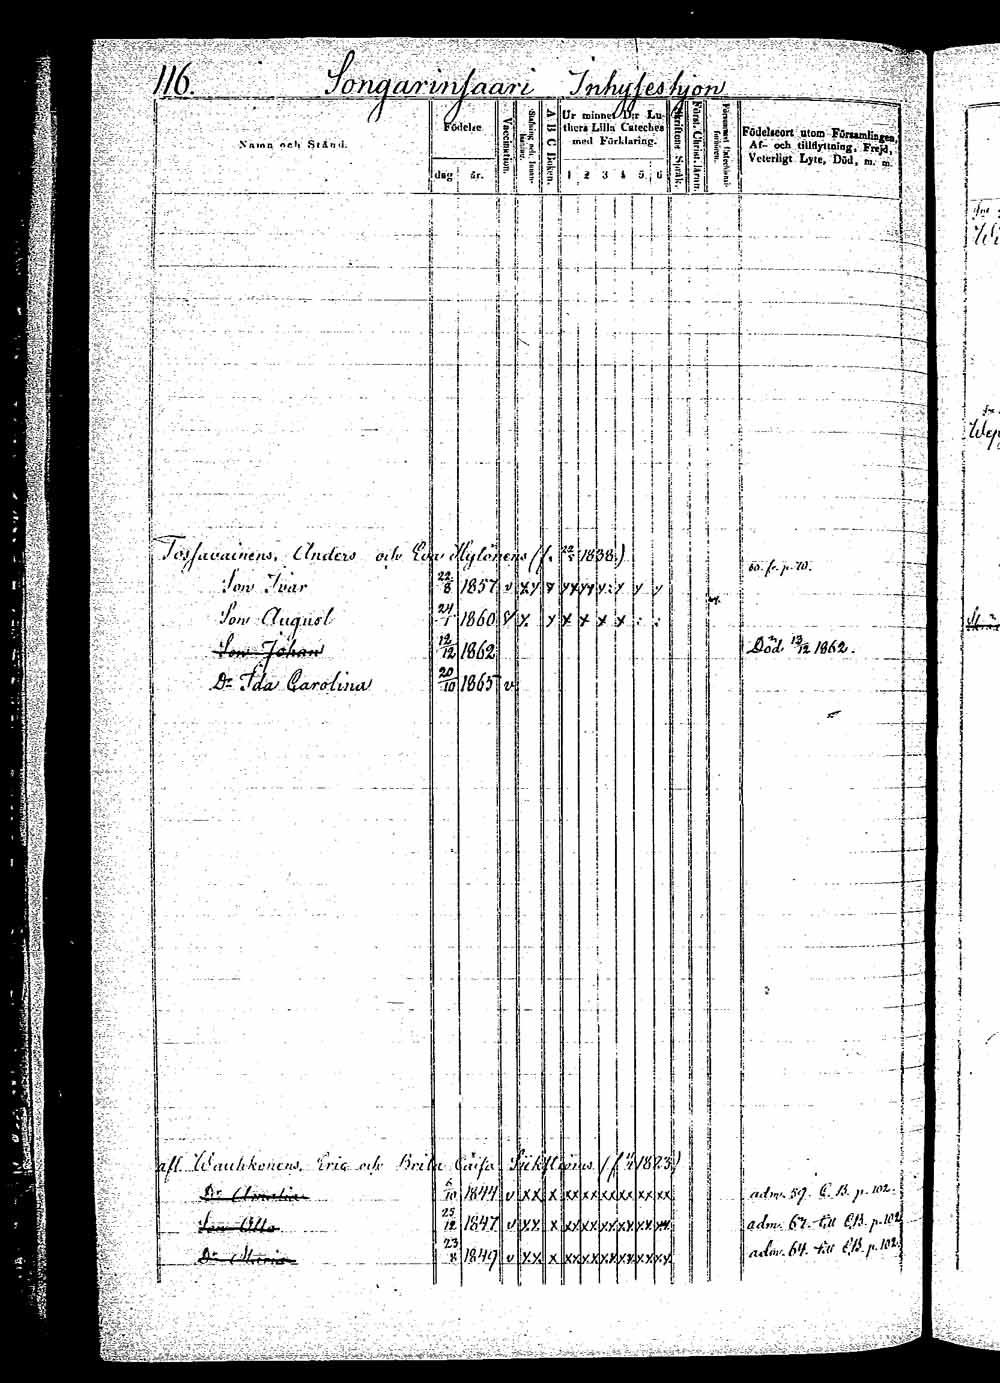 116. Songarinsaari Inhysehjon
Namn och Stånd.
Födelse
dag år.
Vaccination.
A B C Boken.
Ur minnet D:r Lu-
thers Lilla Cateches
med Förklaring.
1 2 3 4 5 6
Skriftens Språk.
Först. Christ. lärun.
Födelseort utom Församlingen,
Af- och tillflyttning, Frejd,
Veterligt Lyte, Död, m. m.
Tossavainens, Anders och Eva Hylönens (f. 1838.)
Son Ivar 22/8 1857 v
Son August 24/1 1860
Son Johan 12/12 1862 Död 13/12 1862.
Dr Ida Carolina 20/10 1865 v
afl. Wauhkonens, Eric och Brita Caisa (f. 1823)
Dr Amalia 6/10 1844 v x x x x x x x x x x x x x x x adm. 59. C. B. p. 102.
Son Otto 25/12 1847 v x x x x x x x x x x x x x x x adm. 67. till C.B. p. 102
Dr Maria 23/8 1849 v x x x x x x x x x x x x x x x adm. 64. till C.B. p. 102.